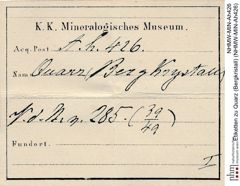 K. K. Mineralogisches Museum.
Acq. Post A. h. 426.
Name Quarz (Bergkrystall)
V. d. M. q. 285. (39/49)
Fundort.
I
NHMW-MIN-AH426
Etiketten zu Quarz (Bergkristall) (NHMW-MIN-AH426)